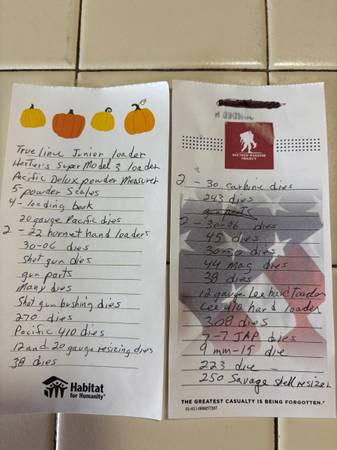 True line Junior loader
Herter's Super Model 3 loader
Pacific Delux powder Measurer
5- powder Scales
4- loading book
20 gauge Pacific dies
2 - 22 hornet hand loaders
30-06 dies
Shot gun dies
gun parts
Many dies
Shot gun bushing dies
270 dies
Pacific 410 dies
12 and 20 gauge resizing dies
38 dies
Habitat
for Humanity
WOUNDED WARRIOR
PROJECT
2 - 30 carbine dies
243 dies
gun parts
2 - 30-06 dies
45 dies
30-30 dies
44 Mag dies
38 dies
12 gauge Lee hand loader
Lee 410 hand loader
308 dies
7-7 JAP dies
9 mm-15 die
223 die
250 Savage shell resizer
THE GREATEST CASUALTY IS BEING FORGOTTEN.